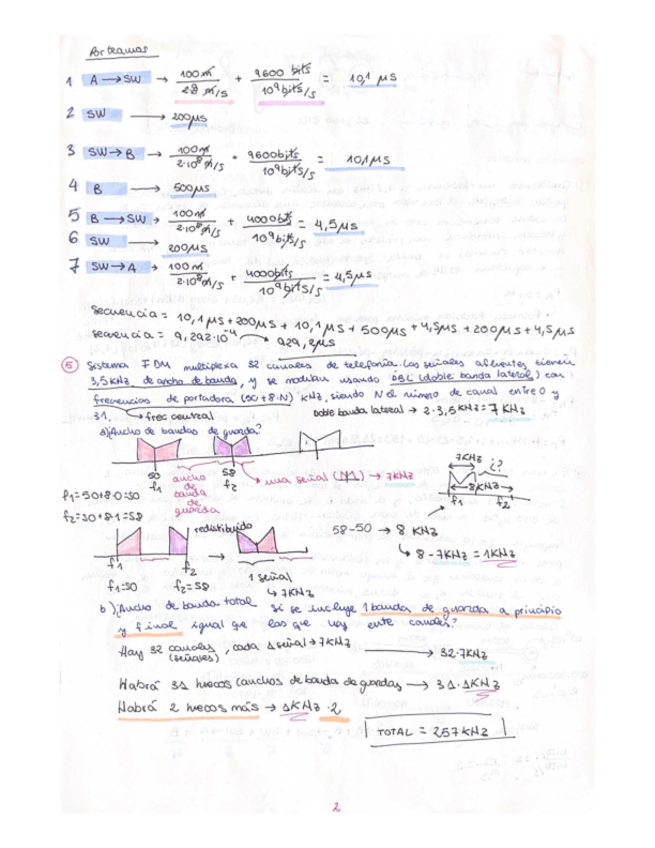 Por tramos
1 A → SW → 100 m / 2·10⁸ m/s + 9600 bits / 10⁹ bits/s = 10,1 µs
2 SW → 200µs
3 SW → B → 100m / 2·10⁸ m/s + 9600bits / 10⁹bits/s = 10,1µs
4 B → 500µs
5 B → SW → 100m / 2·10⁸ m/s + 4000bits / 10⁹ bits/s = 4,5µs
6 SW → 200µs
7 SW → A → 100 m / 2·10⁸ m/s + 4000bits / 10⁹bits/s = 4,5µs
secuencia = 10,1 µs + 200µs + 10,1 µs + 500µs + 4,5µs + 200µs + 4,5 µs
secuencia = 9,292·10⁻⁴ → 929,2µs
5 Sistema FDM multiplexa 32 canales de telefonía. Las señales afluentes tienen
3,5 kHz de ancho de banda, y se modulan usando DBL (doble banda lateral) con
frecuencias de portadora (50 + 8·N) kHz, siendo N el número de canal entre 0 y
31. → frec central Doble banda lateral → 2·3,5kHz = 7 kHz
a) ¿Ancho de bandas de guarda?
50 f1 58 f2
ancho de banda de guarda
una señal → 7kHz
7kHz ¿?
8kHz
f1 f2
f1 = 50+8·0 = 50
f2 = 50+8·1 = 58
58-50 → 8 kHz
8 - 7kHz = 1kHz
redistribuido
f1 f2
1 señal
7kHz
f1=50 f2=58
b) ¿Ancho de banda total si se incluye 1 banda de guarda a principio
y final igual que las que hay entre canales?
Hay 32 canales (señales), cada 1 señal → 7kHz → 32·7kHz
Habrá 31 huecos (anchos de banda de guarda) → 31·1kHz
Habrá 2 huecos más → 1kHz·2
TOTAL = 257 kHz
2